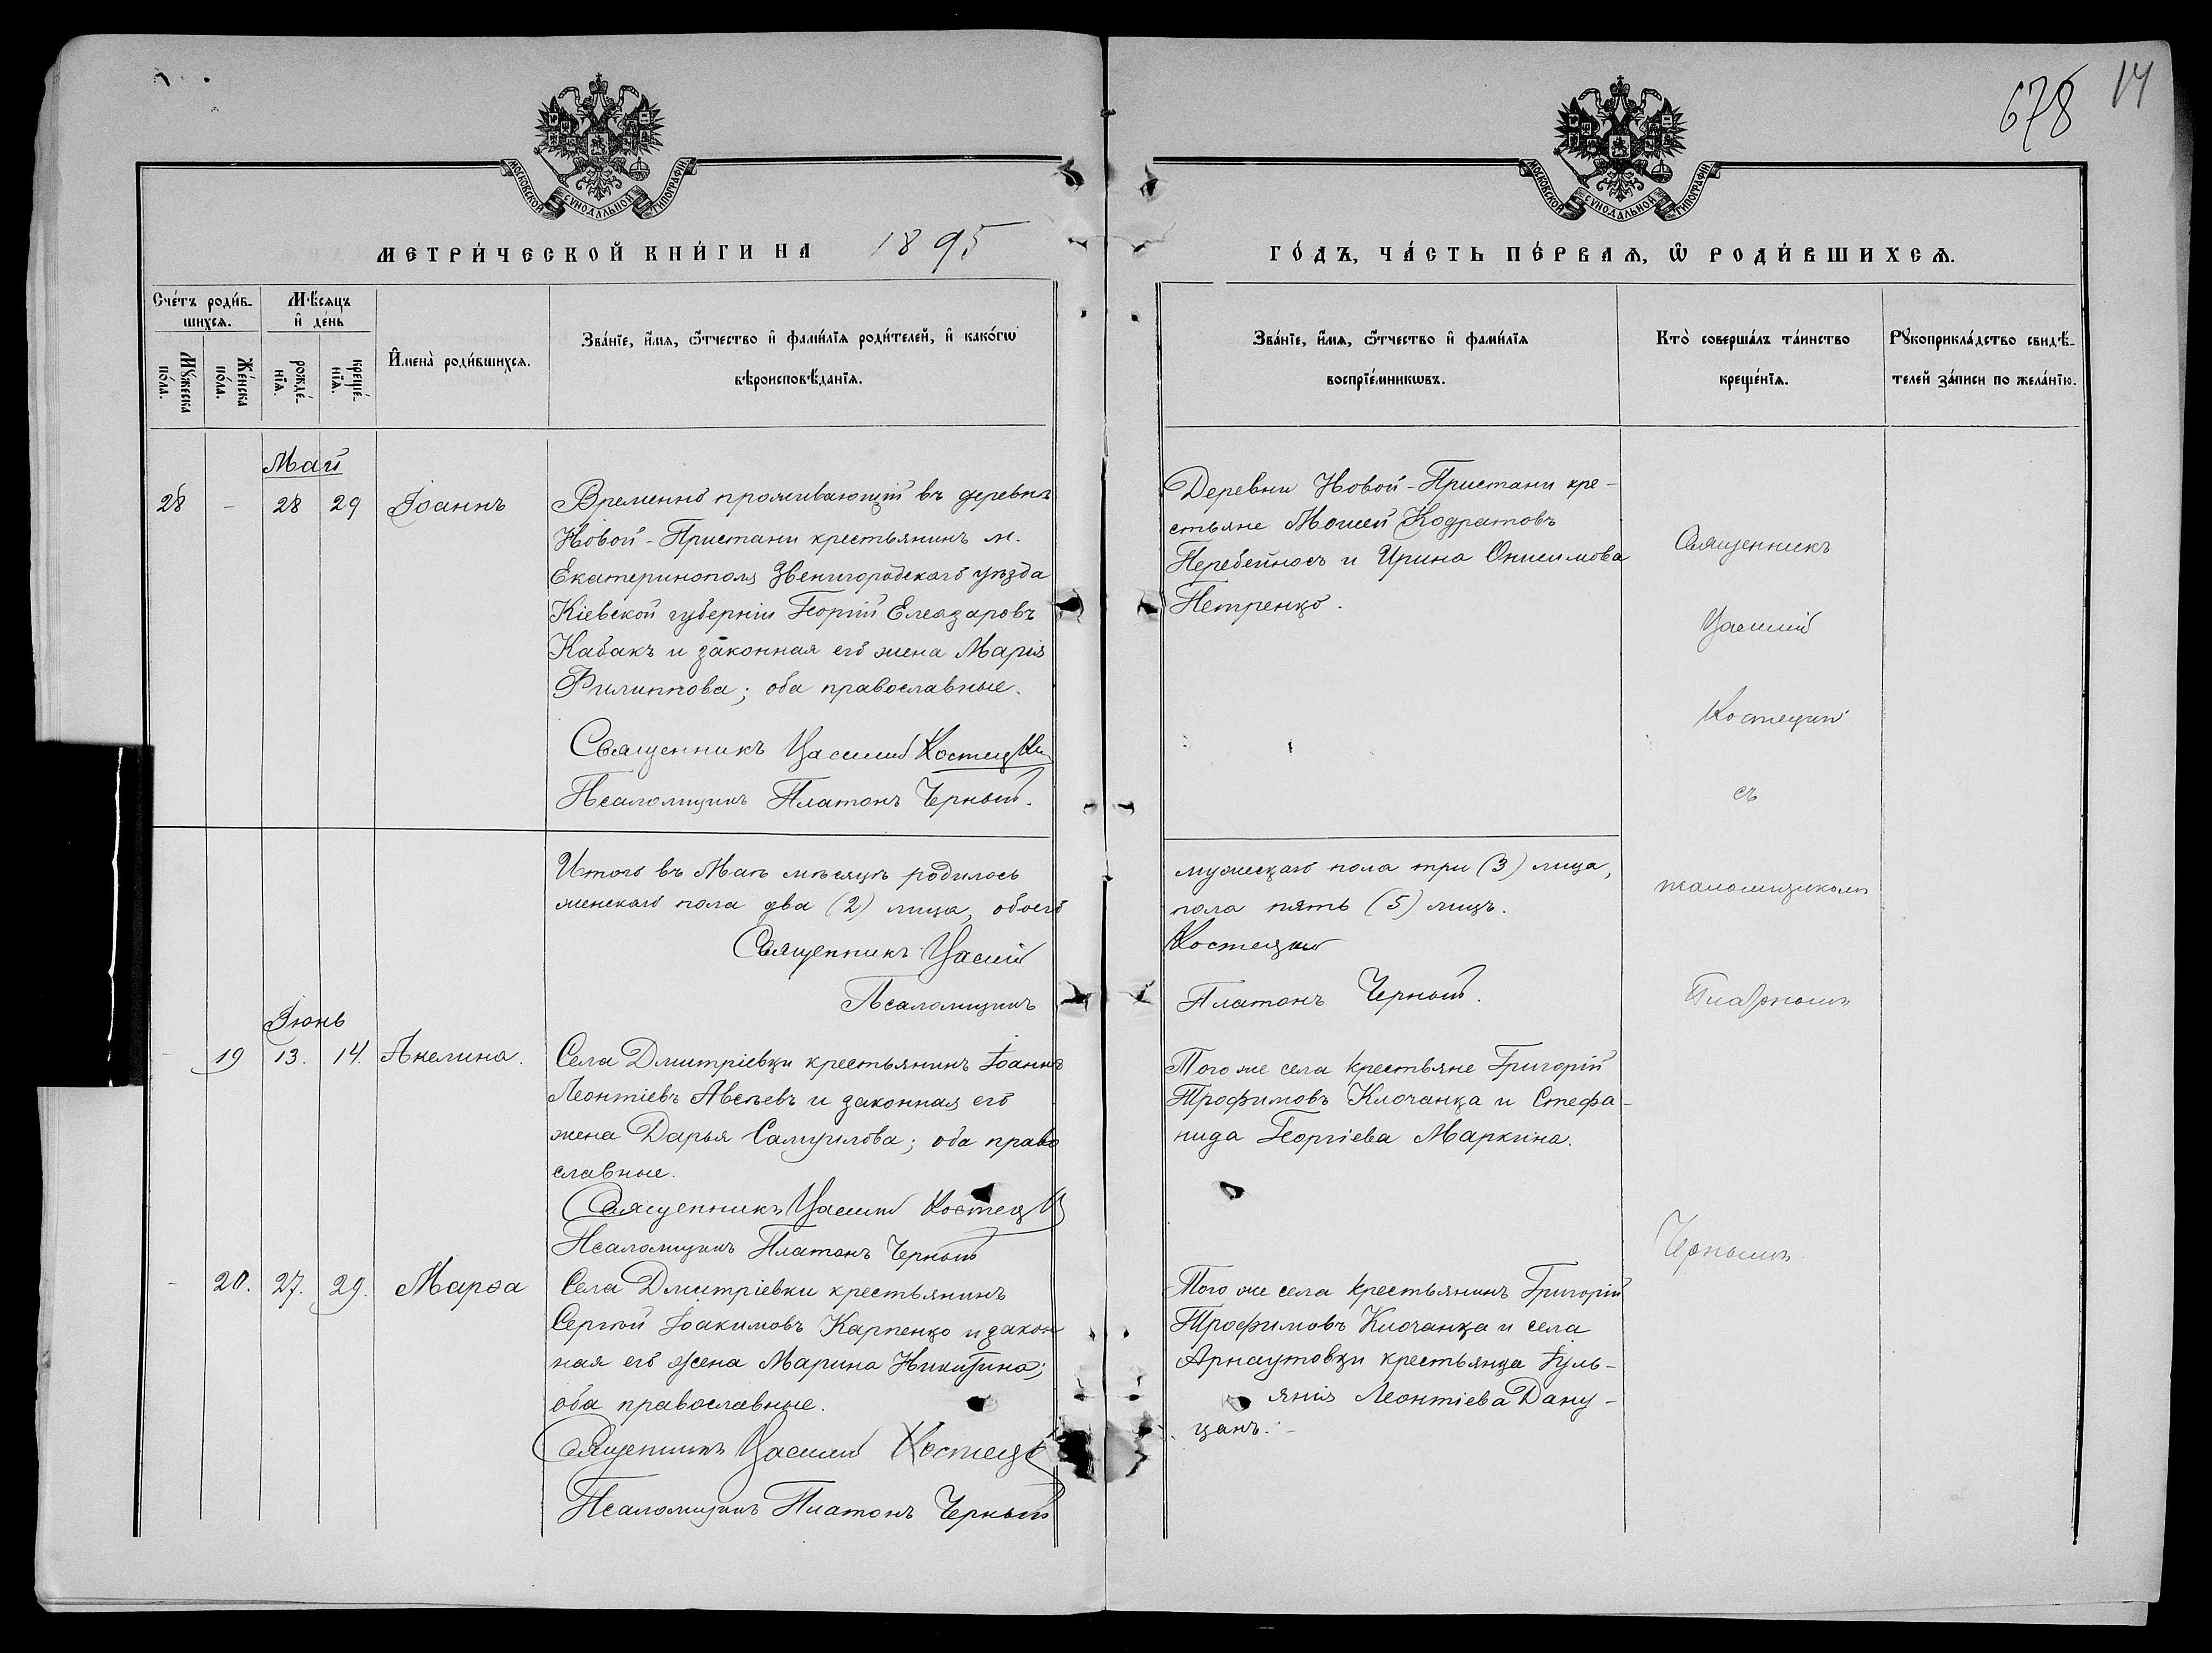 678 14
МОСКОВСКОЙ СѴНОДАЛЬНОЙ ТИПОГРАФІИ
МОСКОВСКОЙ СѴНОДАЛЬНОЙ ТИПОГРАФІИ
МЕТРИ́ЧЕСКОЙ КНИ́ГИ НА 1895 ГО́ДЪ, ЧА́СТЬ ПЕ́РВАЯ, Ѿ РОДИ́ВШИХСЯ.
Сче́тъ роди́в-
шихся.
Мꙋ́жеска
по́ла.
Же́нска
по́ла.
Мѣ́сяцъ
и҆ де́нь
рожде́-
нїя.
креще́-
нїя.
И҆мена̀ роди́вшихся.
Зва́нїе, и҆́мя, ѻ҆́тчество и҆ фами́лїя роди́телей, и҆ како́гѡ
вѣроисповѣ́данїя.
Зва́нїе, и҆́мя, ѻ҆́тчество и҆ фами́лїя
воспрїе́мникѡвъ.
Кто̀ соверша́лъ та́инство
креще́нїя.
Рꙋкоприкла́дство свидѣ́-
телей за́писи по жела́нїю.
Май
28 - 28 29 Іоаннъ
Временно проживающій въ деревнѣ
Новой-Пристани крестьянинъ м.
Екатеринополя Звенигородскаго уѣзда
Кіевской губерніи Георгій Елеазаровъ
Кабакъ и законная его жена Марія
Филиппова; оба православные.
Священникъ Василій Костецкій
Псаломщикъ Платонъ Черный.
Деревни Новой-Пристани кре-
стьяне Моисей Кодратовъ
Перебейносъ и Ирина Онисимова
Петренко.
Священникъ
Василій
Костецкій
съ
псаломщикомъ
Платономъ
Чернымъ
Итого въ Маѣ мѣсяцѣ родилось
женскаго пола два (2) лица, обоего
Священникъ Василій
Псаломщикъ
мужескаго пола три (3) лица,
пола пять (5) лицъ.
Костецкій
Платонъ Черный.
Іюнь
- 19 13. 14. Акелина.
Села Дмитріевки крестьянинъ Іоаннъ
Леонтіевъ Авсѣевъ и законная его
жена Дарья Самуилова; оба право
славные.
Священникъ Василій Костецкій
Псаломщикъ Платонъ Черный
Того же села крестьяне Григорій
Трофимовъ Клочанка и Стефа-
нида Георгіева Маркина.
- 20. 27. 29. Марѳа
Села Дмитріевки крестьянинъ
Сергѣй Іоакимовъ Карпенко и закон
ная его жена Марина Никитина;
оба православные.
Священникъ Василій Костецкій
Псаломщикъ Платонъ Черный
Того же села крестьянинъ Григорій
Трофимовъ Клочанка и села
Арнаутовки крестьянка Іуль-
янія Леонтіева Дану-
цанъ.